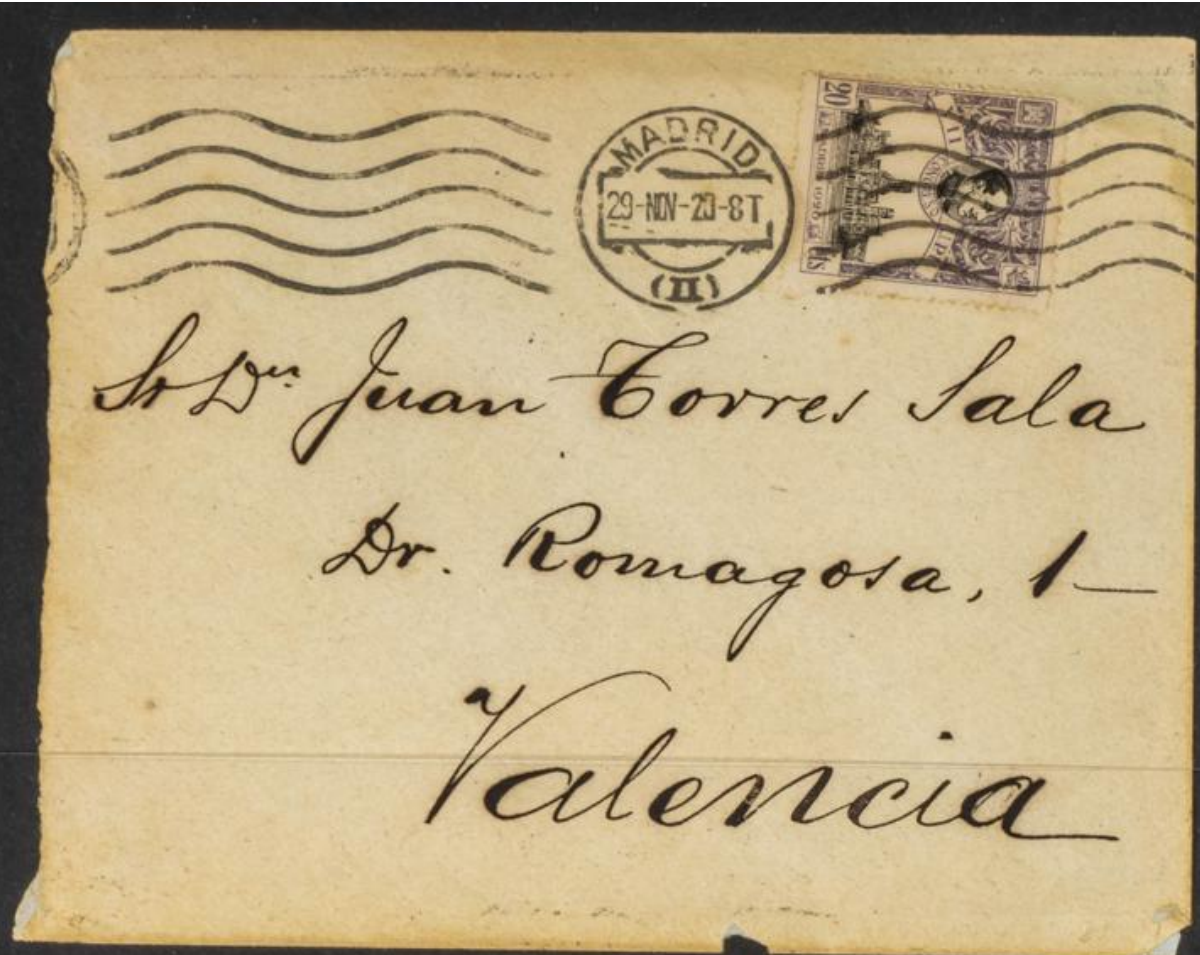 MADRID
29-NOV-20-8T
(II)
20
Cts
Sr Dn Juan Torres Sala
Dr. Romagosa, 1-
Valencia